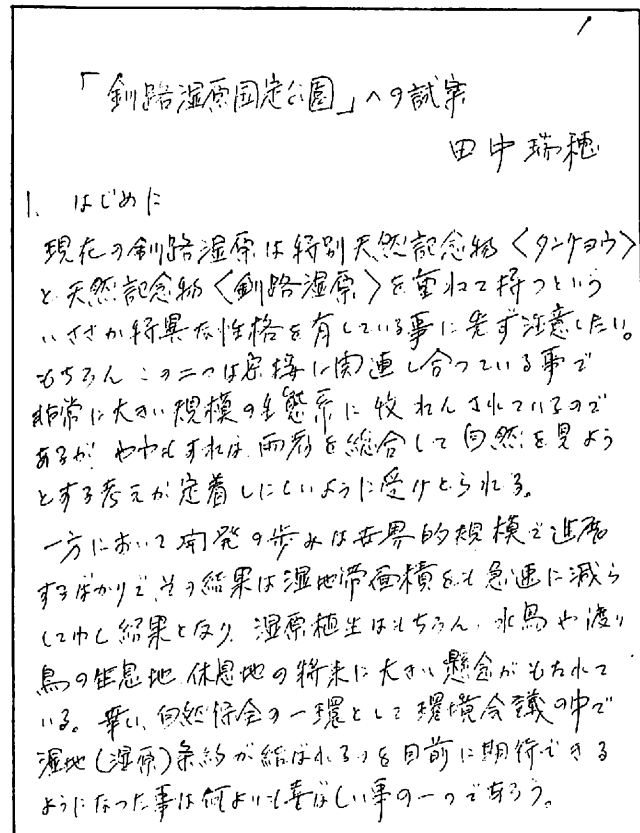 1
「釧路湿原国定公園」への試案
田中瑞穂
1. はじめに
現在の釧路湿原は特別天然記念物〈タンチョウ〉
と天然記念物〈釧路湿原〉を重ねて持つという
いささか特異な性格を有している事に先ず注意したい。
もちろん この二つは密接に関連し合っている事で
非常に大きい規模の生態系に收れんされているので
あるが、ややもすれば、両者を総合して自然を見よう
とする考えが定着しにくいように受けとられる。
一方において開発の歩みは世界的規模で進展
するばかりで、その結果は湿地帯面積をも急速に減ら
してゆく結果となり、湿原植生はもちろん、水鳥や渡り
鳥の生息地、休息地の将来に大きい懸念がもたれて
いる。幸い、自然保全の一環として環境会議の中で
湿地(湿原)条約が結ばれるのを目前に期待できる
ようになった事は何よりも喜ばしい事の一つであろう。